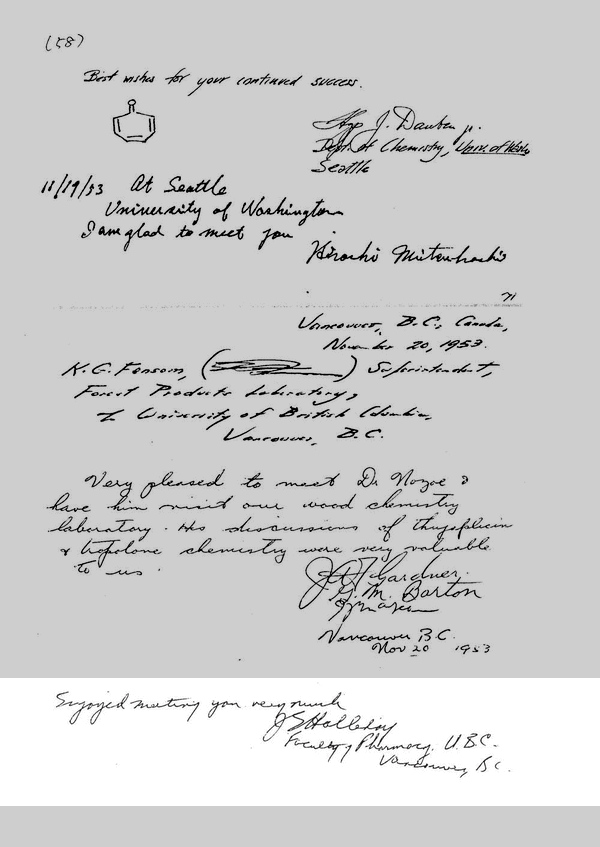 (58)
Best wishes for your continued success.
Hyp J. Dauben jr.
Dept. of Chemistry, Univ. of Wash.
Seattle
11/19/53 At Seattle
University of Washington
I am glad to meet you
Hiroshi Mitsuhashi
Vancouver, B.C., Canada,
November 20, 1953.
K. G. Fensom, ( ) Superintendent,
Forest Products Laboratory,
University of British Columbia,
Vancouver, B.C.
Very pleased to meet Dr Nozoe &
have him visit our wood chemistry
laboratory. His discussions of thujaplicin
& tropolone chemistry were very valuable
to us.
J A F Gardner.
G. M. Barton
Vancouver B.C.
Nov 20 1953
Enjoyed meeting you very much
Faculty of Pharmacy, U.B.C.
Vancouver, B.C.